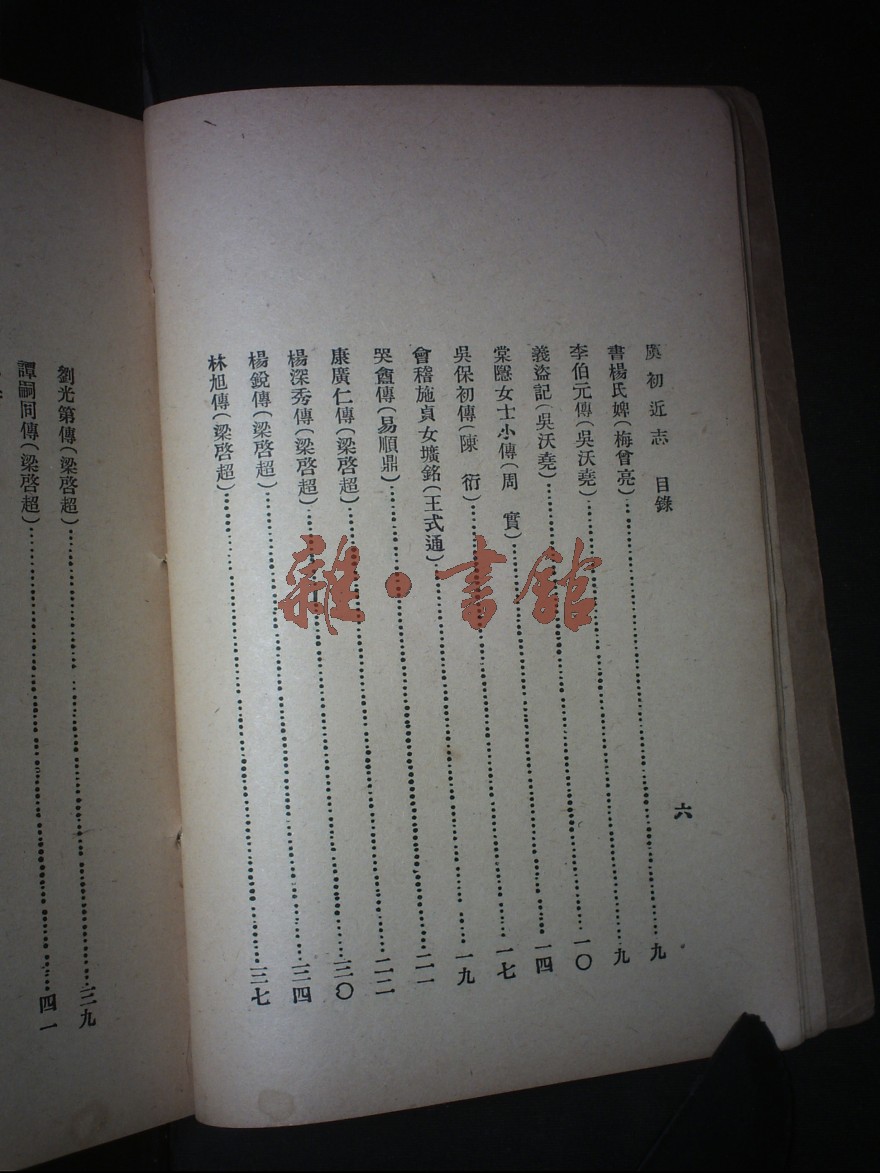 虞初近志 目錄 六
書楊氏婢(梅曾亮)……九
李伯元傳(吳沃堯)……九
義盜記(吳沃堯)……一〇
棠隱女士小傳(周 實)……一四
吳保初傳(陳 衍)……一七
會稽施貞女壙銘(王式通)……一九
哭盦傳(易順鼎)……二一
康廣仁傳(梁啓超)……二二
楊深秀傳(梁啓超)……三〇
楊銳傳(梁啓超)……三四
林旭傳(梁啓超)……三七
劉光第傳(梁啓超)……三九
譚嗣同傳(梁啓超)……四一
雜·書館